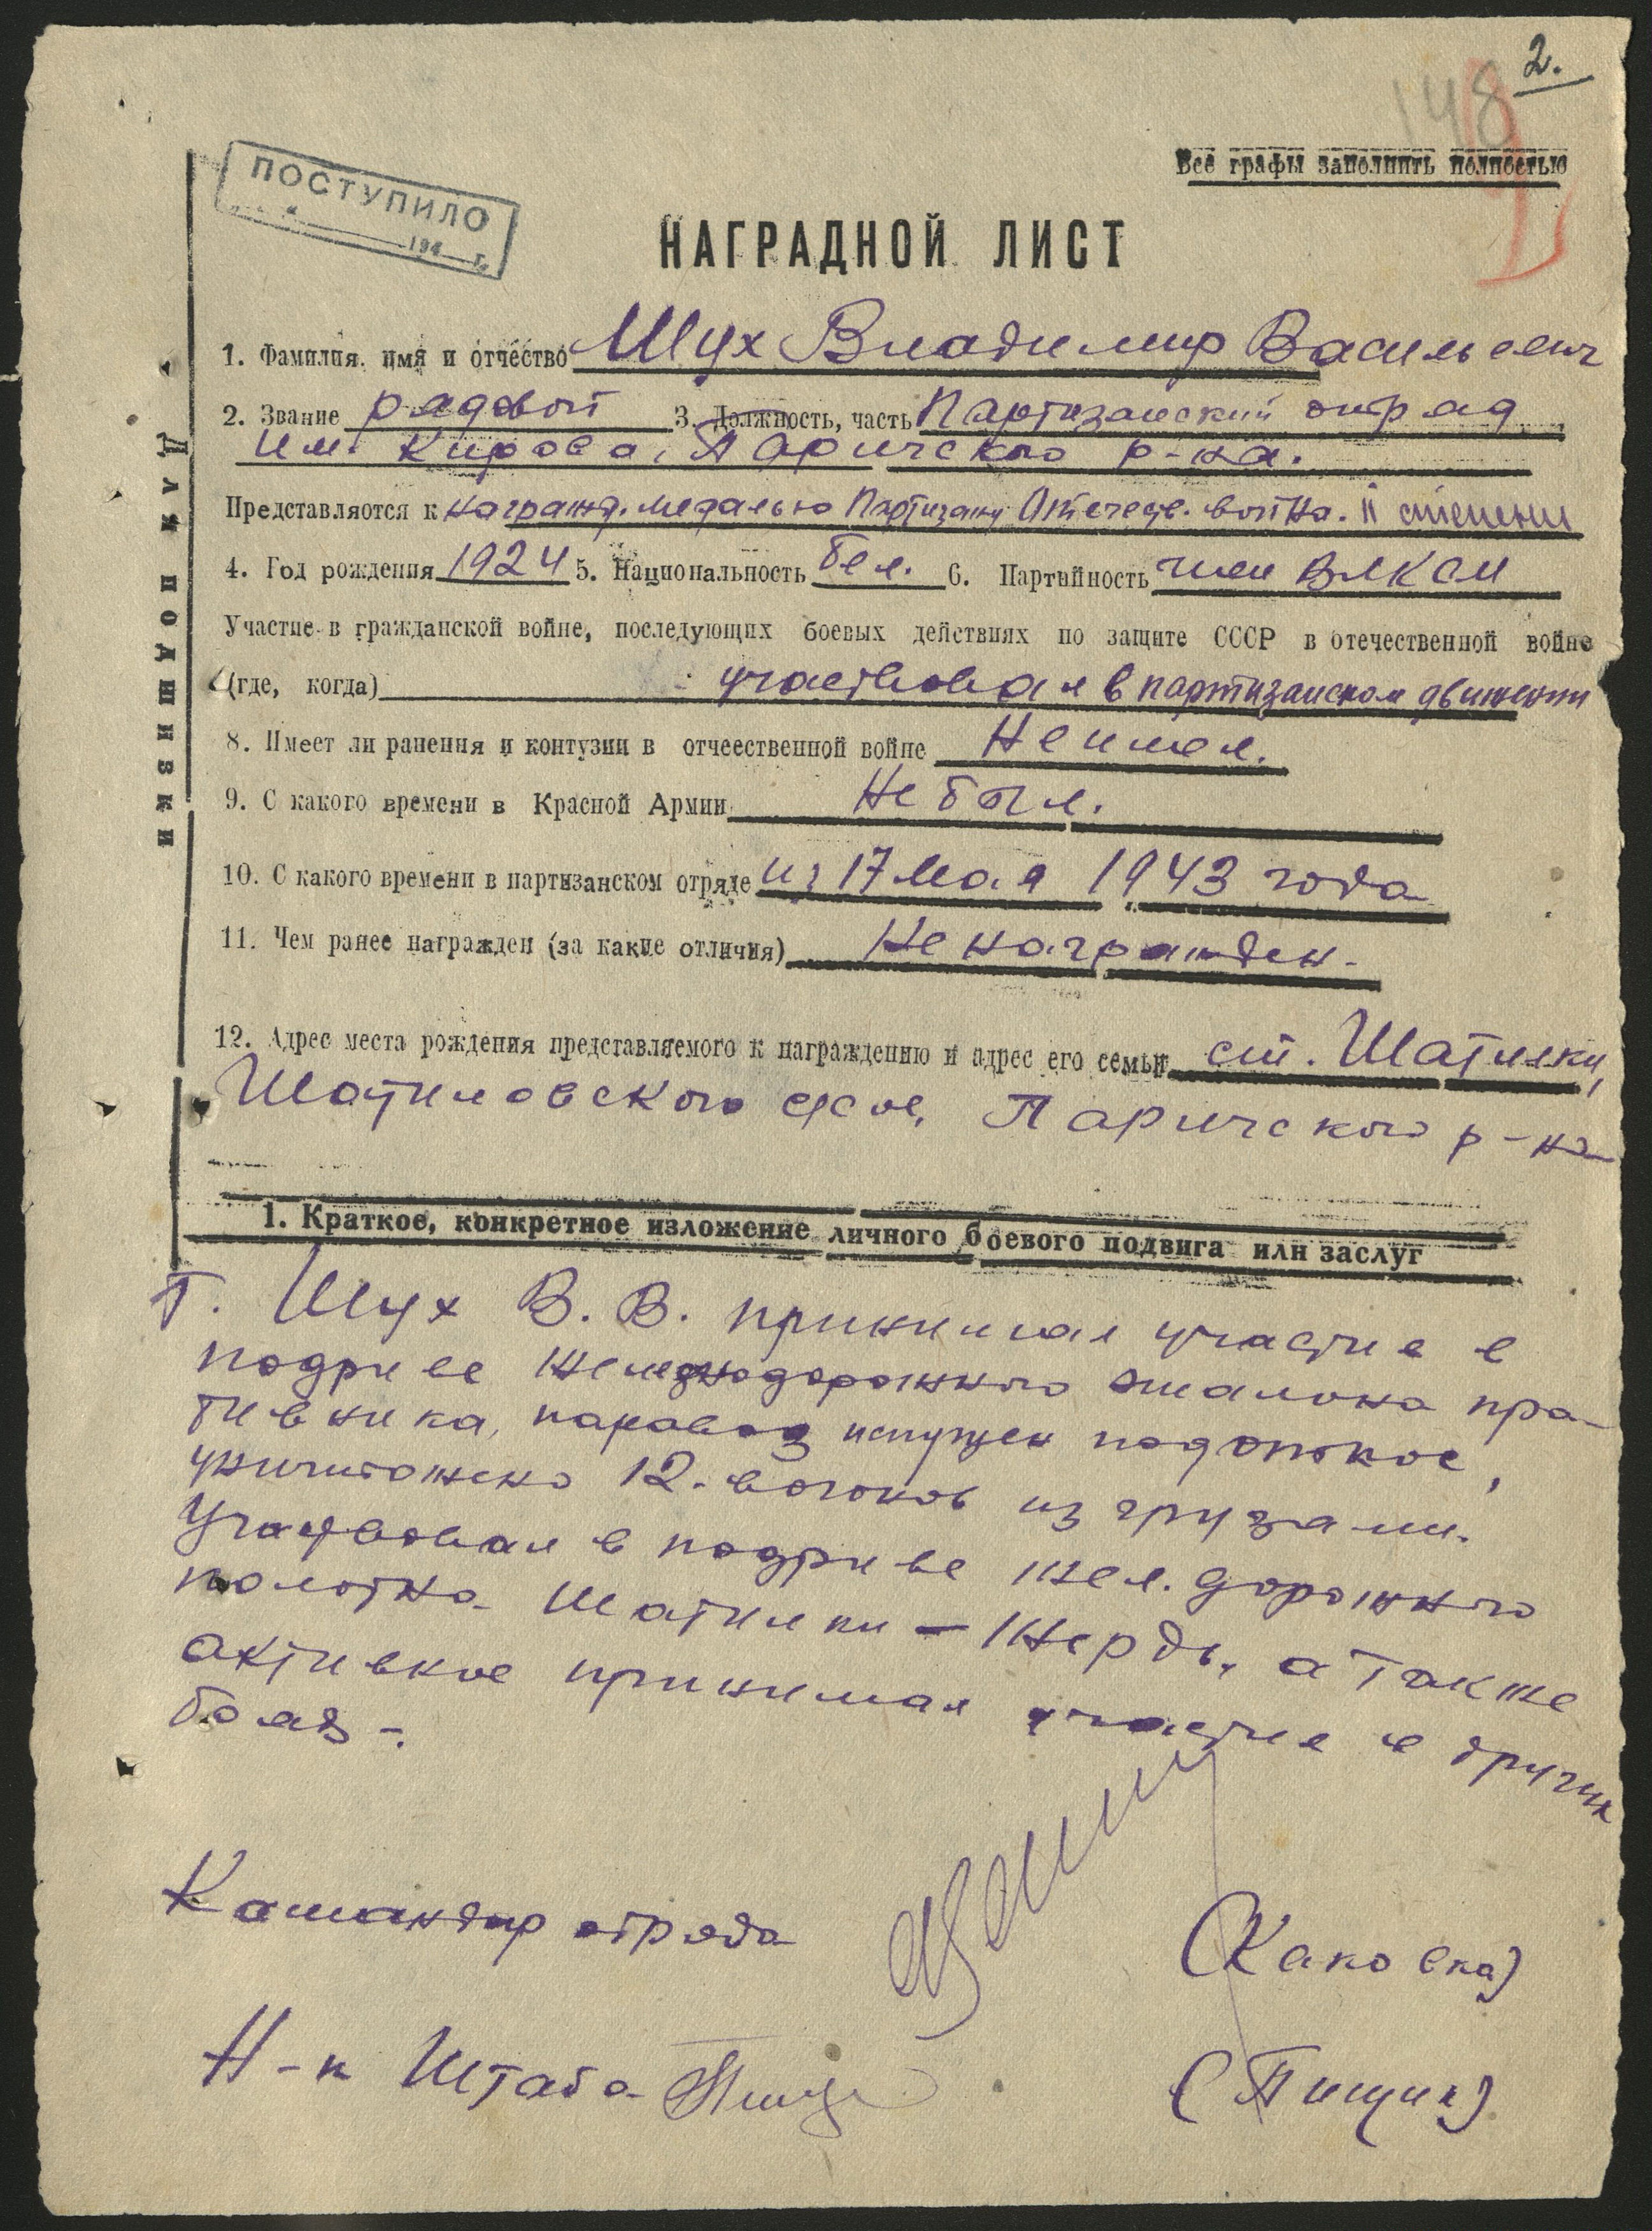 2.
148
Все графы заполнить полностью
ПОСТУПИЛО
"    " 194   г.
НАГРАДНОЙ ЛИСТ
1. Фамилия, имя и отчество Шух Владимир Васильевич
2. Звание рядовой 3. Должность, часть Партизанский отряд
им. Кирова, Паричского р-на.
Представляются к награжд. медалью Партизану Отечеств. война. II степени
4. Год рождения 1924 5. Национальность бел. 6. Партийность член ВЛКСМ
Участие в гражданской войне, последующих боевых действиях по защите СССР в отечественной войне
(где, когда) участвовал в партизанском движении
8. Имеет ли ранения и контузии в отчеественной войне Не имел.
9. С какого времени в Красной Армии Не был.
10. С какого времени в партизанском отряде из 17 мая 1943 года
11. Чем ранее награжден (за какие отличия) Не награжден.
12. Адрес места рождения представляемого к награждению и адрес его семьи ст. Шатилки,
Шатиловского с/сов, Паричского р-на
Для подшивки
1. Краткое, конкретное изложение личного боевого подвига или заслуг
Т. Шух В. В. принимал участие в
подриве железнодорожного эшалона пра-
тивника, паравоз испущен под откос,
уничтожено 12. вагонов из грузами.
Участвовал в подриве жел. дорожного
полотна Шатилки – Жердь, а также
активное принимал участие в других
боях -.
Командир отряда
Н-к Штаба
(Пищик)